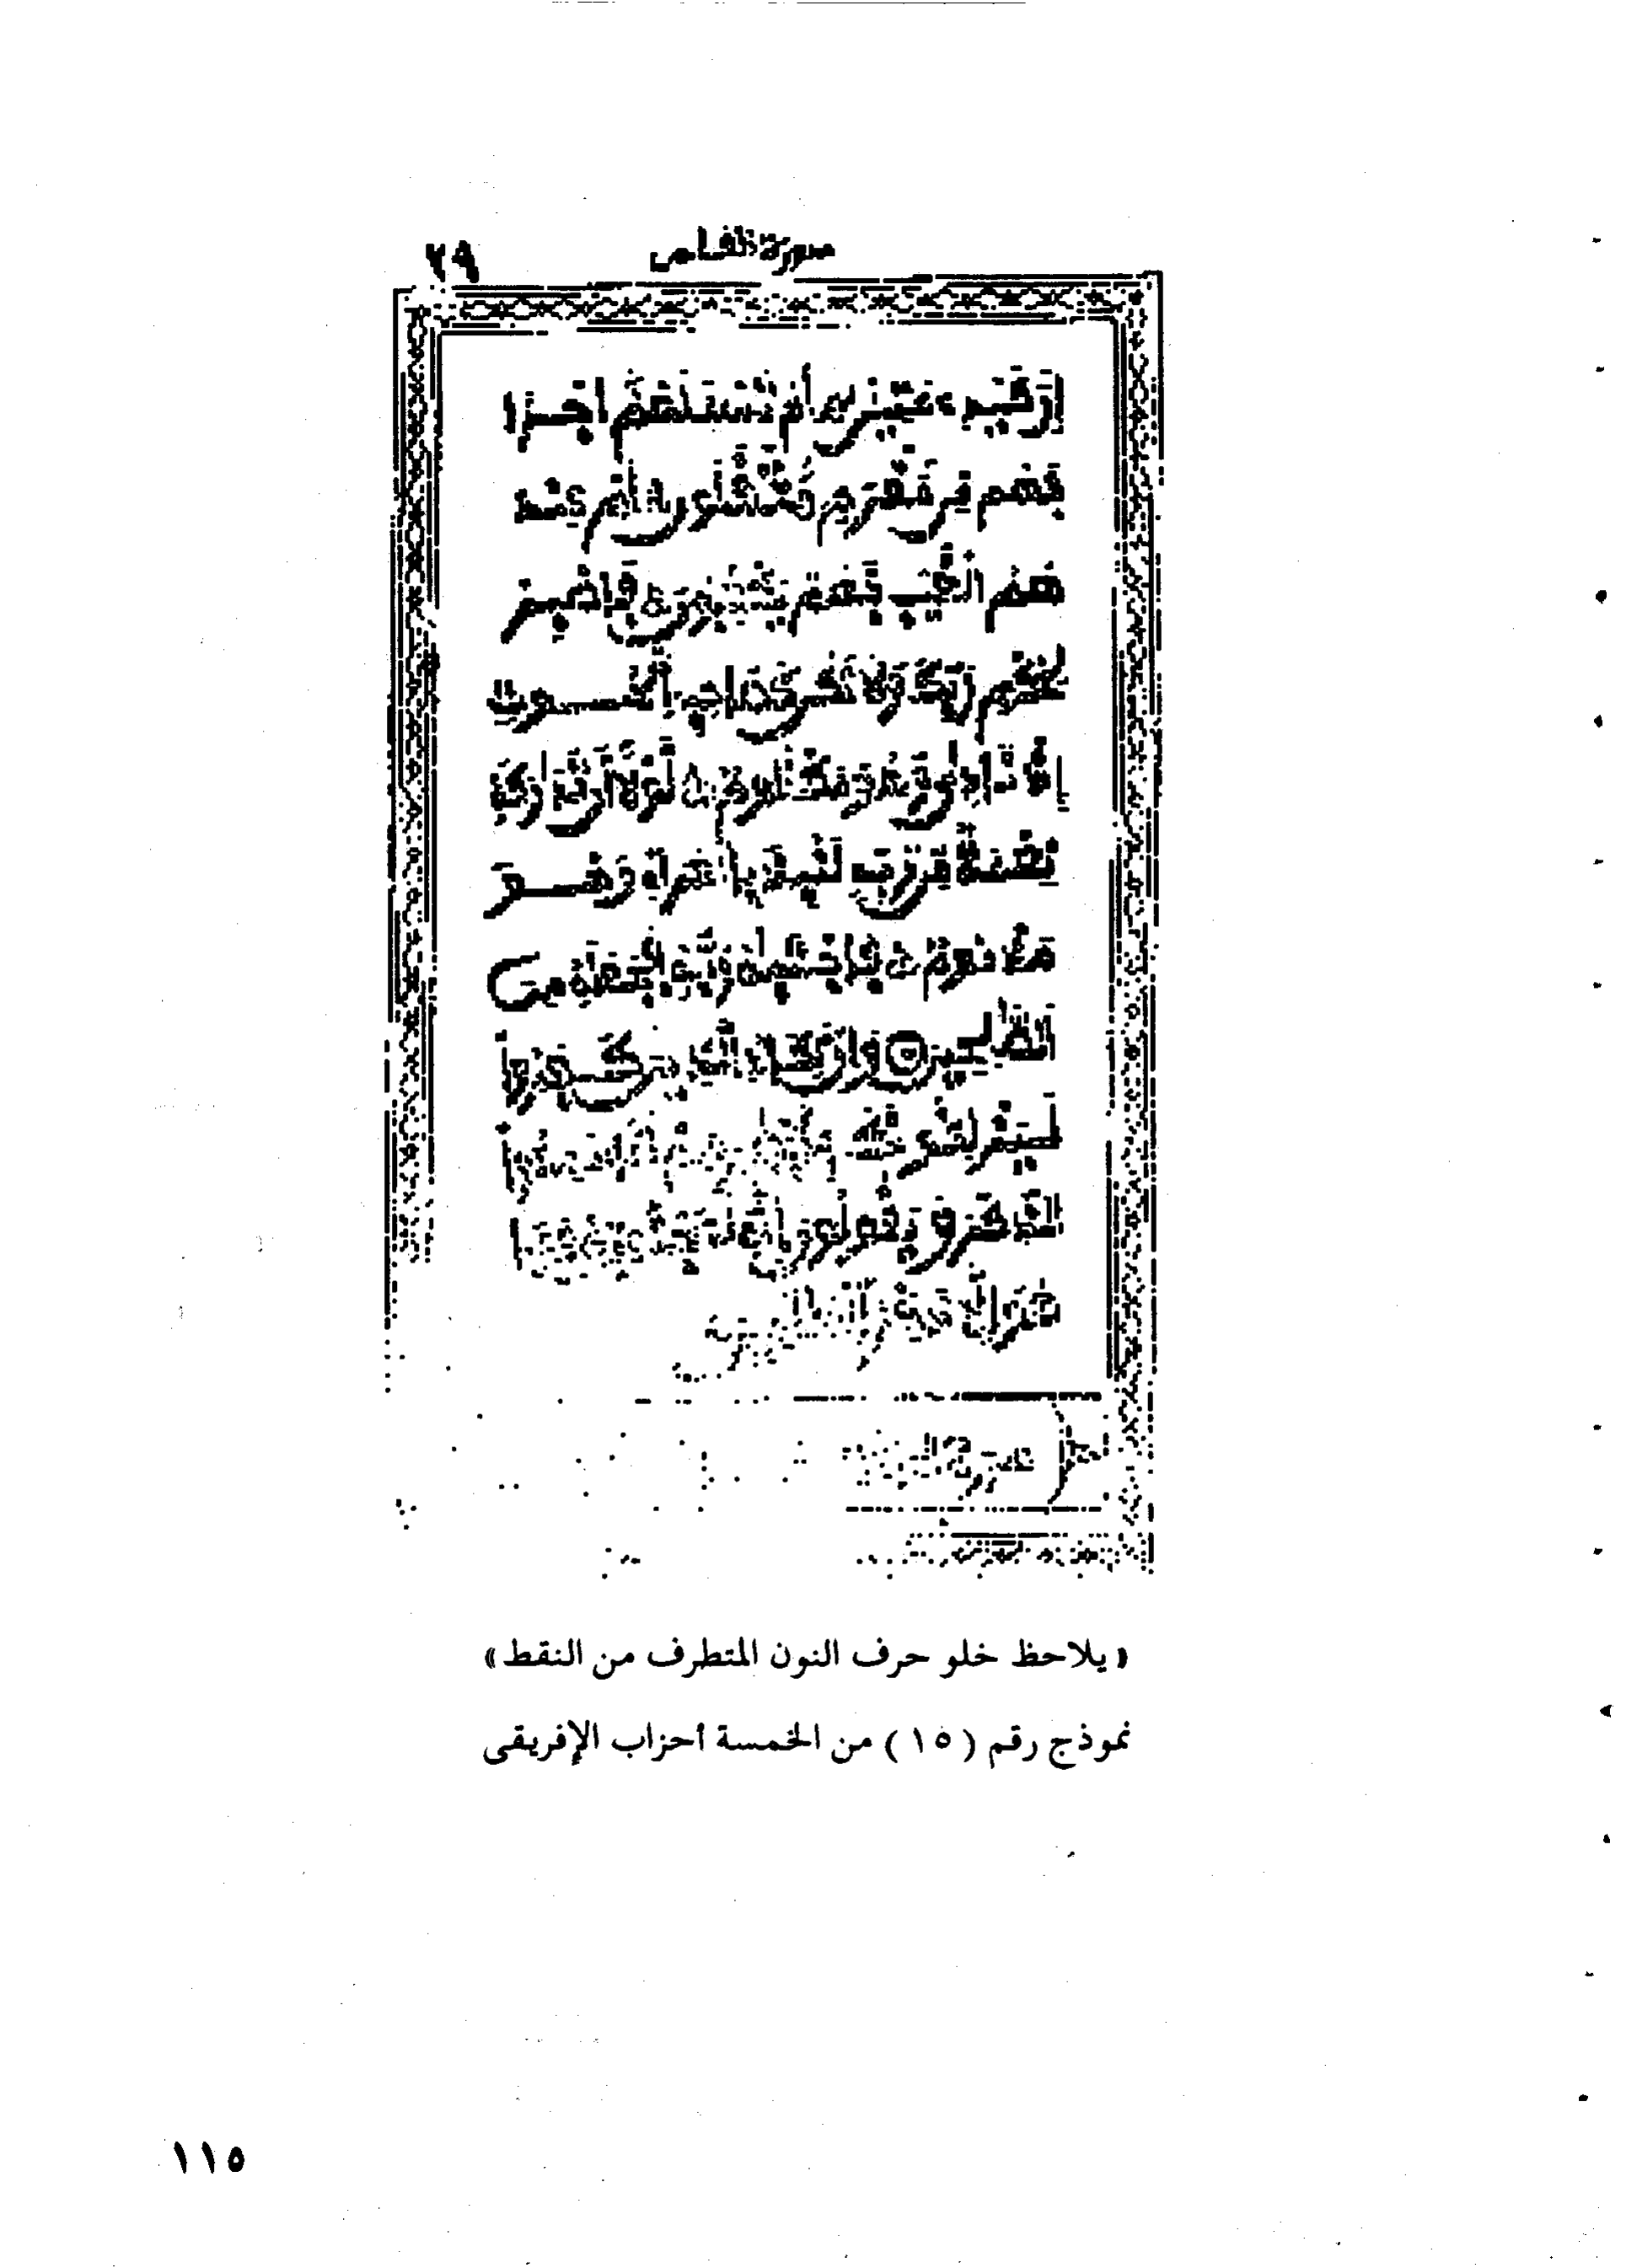 ٢٩
إن كيدي متين أم تسئلهم أجرا
فهم من مغرم مثقلون أم عند
هم الغيب فهم يكتبون فاصبر
لحكم ربك ولا تكن كصاحب الحوت
إذ نادى وهو مكظوم لولا أن تداركه
نعمة من ربه لنبذ بالعراء وهو
مذموم فاجتبه ربه فجعله من
الصلحين وإن يكاد الذين كفروا
ليزلقونك لما سمعوا
الذكر ويقولون إنه
هو إلا ذكر للعلمين
سورة
« يلاحظ خلو حرف النون المتطرف من النقط »
نموذج رقم ( ١٥ ) من الخمسة أحزاب الإفريقى
١١٥